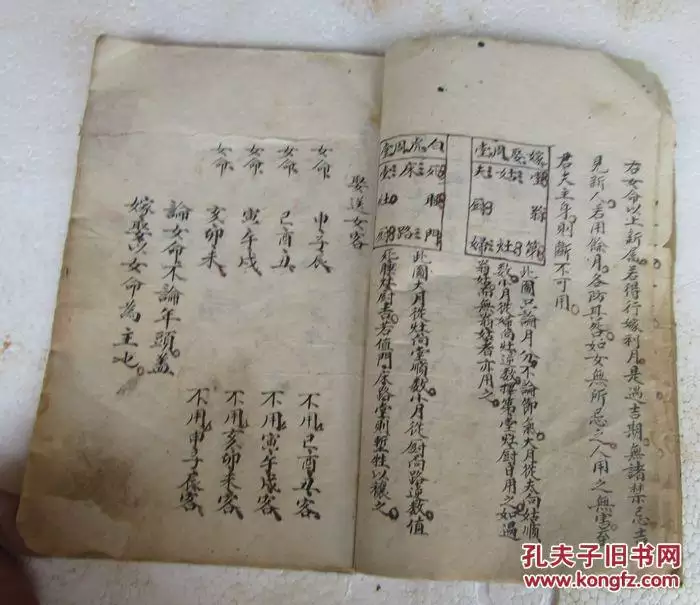 右女命以上新圖若得行嫁利月是遇吉期無諸禁忌
見新人若用餘月各防其咎如女無所忌之人用之無害
君夫主年則斷不可用
嫁娶周堂
翁 第
夫 姑 堂
廚
婦 灶
此圖只論月分不論節氣大月從夫向姑順
數小月從婦向灶逆數擇第堂灶廚日用之如遇
翁姑而無翁姑者亦用之
白虎周堂
門
床
灶
廚 路
此圖大月從灶向堂順數小月從廚向路逆數值
灶廚去若值門床路堂則暫牲以禳之
娶送女客
女命 申子辰 不用巳酉丑客
女命 巳酉丑 不用寅午戌客
女命 寅午戌 不用亥卯未客
女命 亥卯未 不用申子辰客
論女命不論年頭蓋
嫁娶以女命為主也
孔夫子旧书网
www.kongfz.com